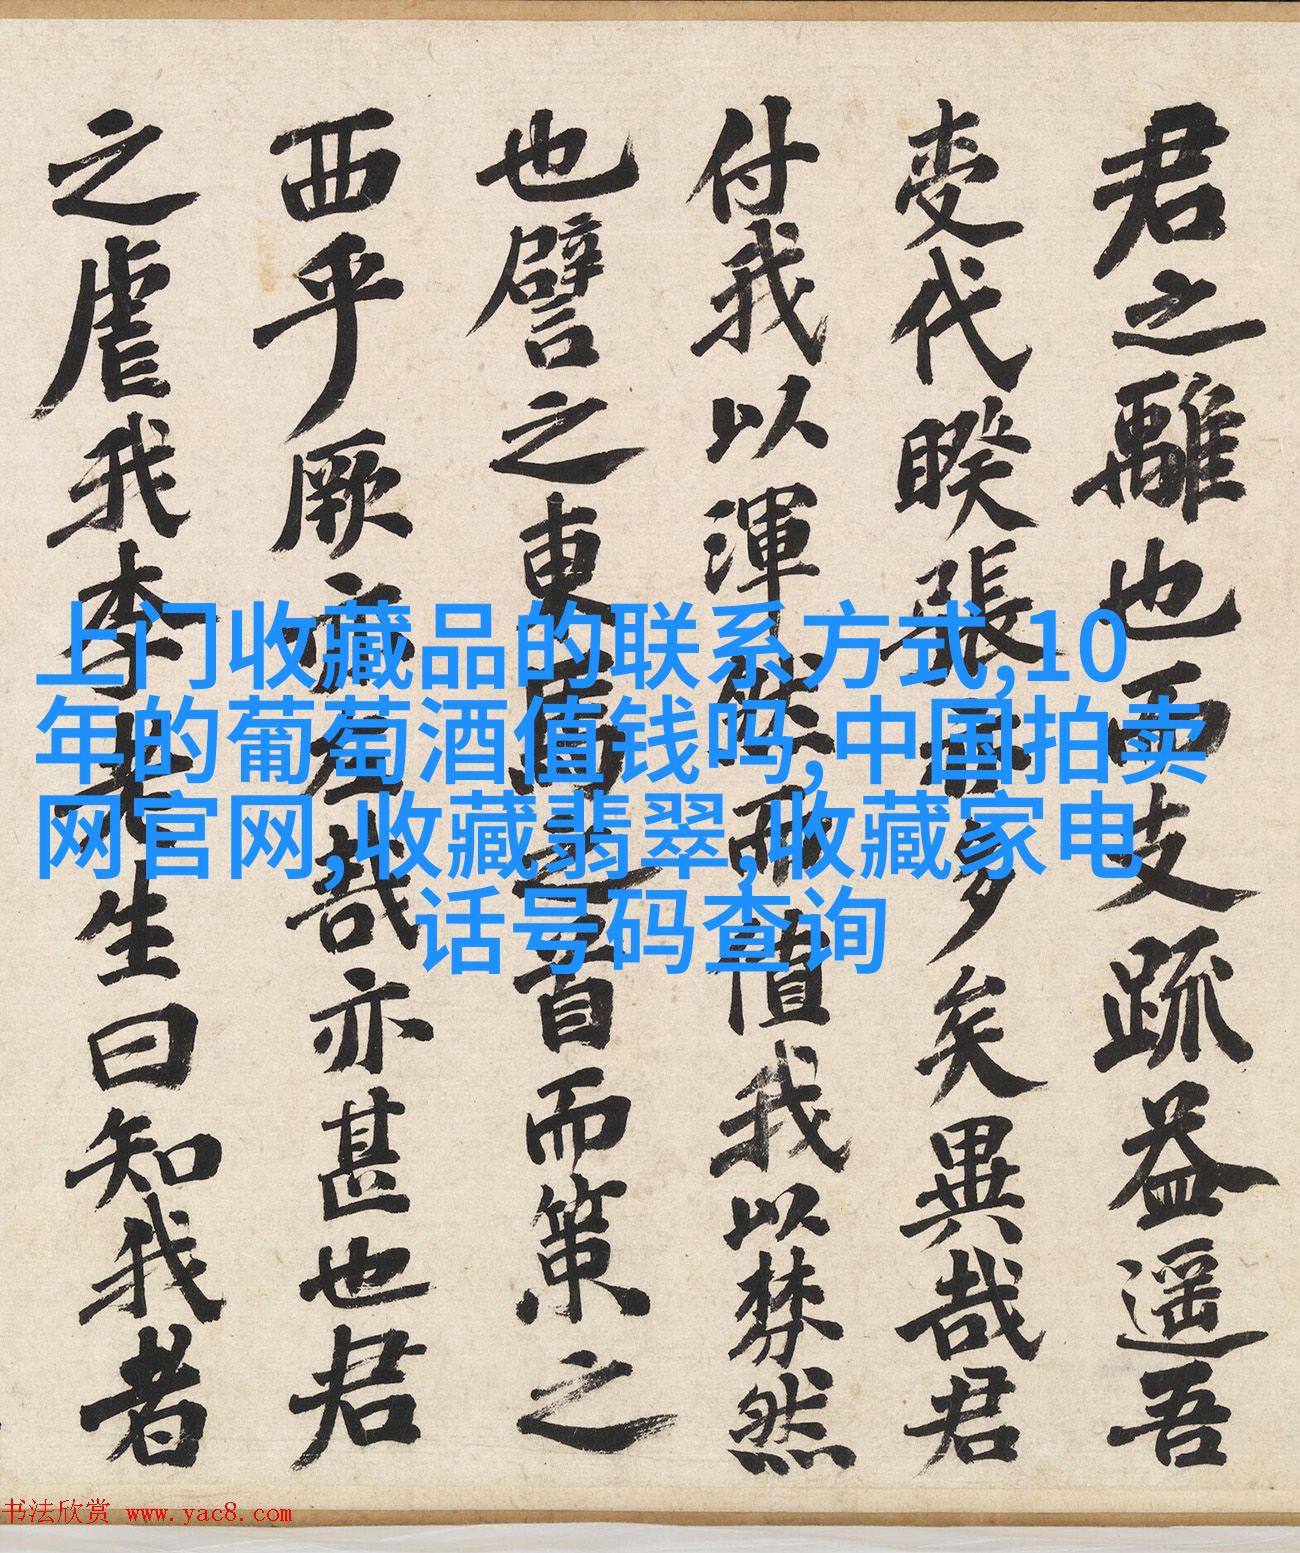 君之離也而支疏益遥吾
受代暌張
多矣異哉君
付我以渾然而
我以棼然
也譬之東
首而策之
西乎厥亦
哉亦甚也君
之虐我李
生曰知我者
上门收藏品的联系方式,10
年的葡萄酒值钱吗,中国拍卖
网官网,收藏翡翠,收藏家电
话号码查询
书法欣赏 www.yac8.com